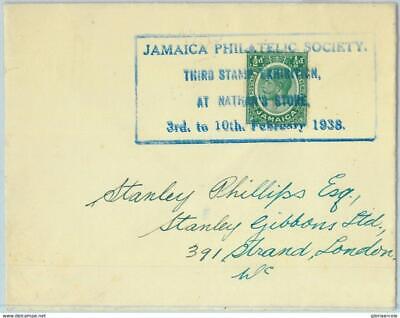 JAMAICA PHILATELIC SOCIETY.
THIRD STAMP EXHIBITION,
AT NATHAN'S STORE,
3rd. to 10th. February 1938.
½d ½d
JAMAICA
Stanley Phillips Esq,
Stanley Gibbons Ltd,
391 Strand, London.
WC